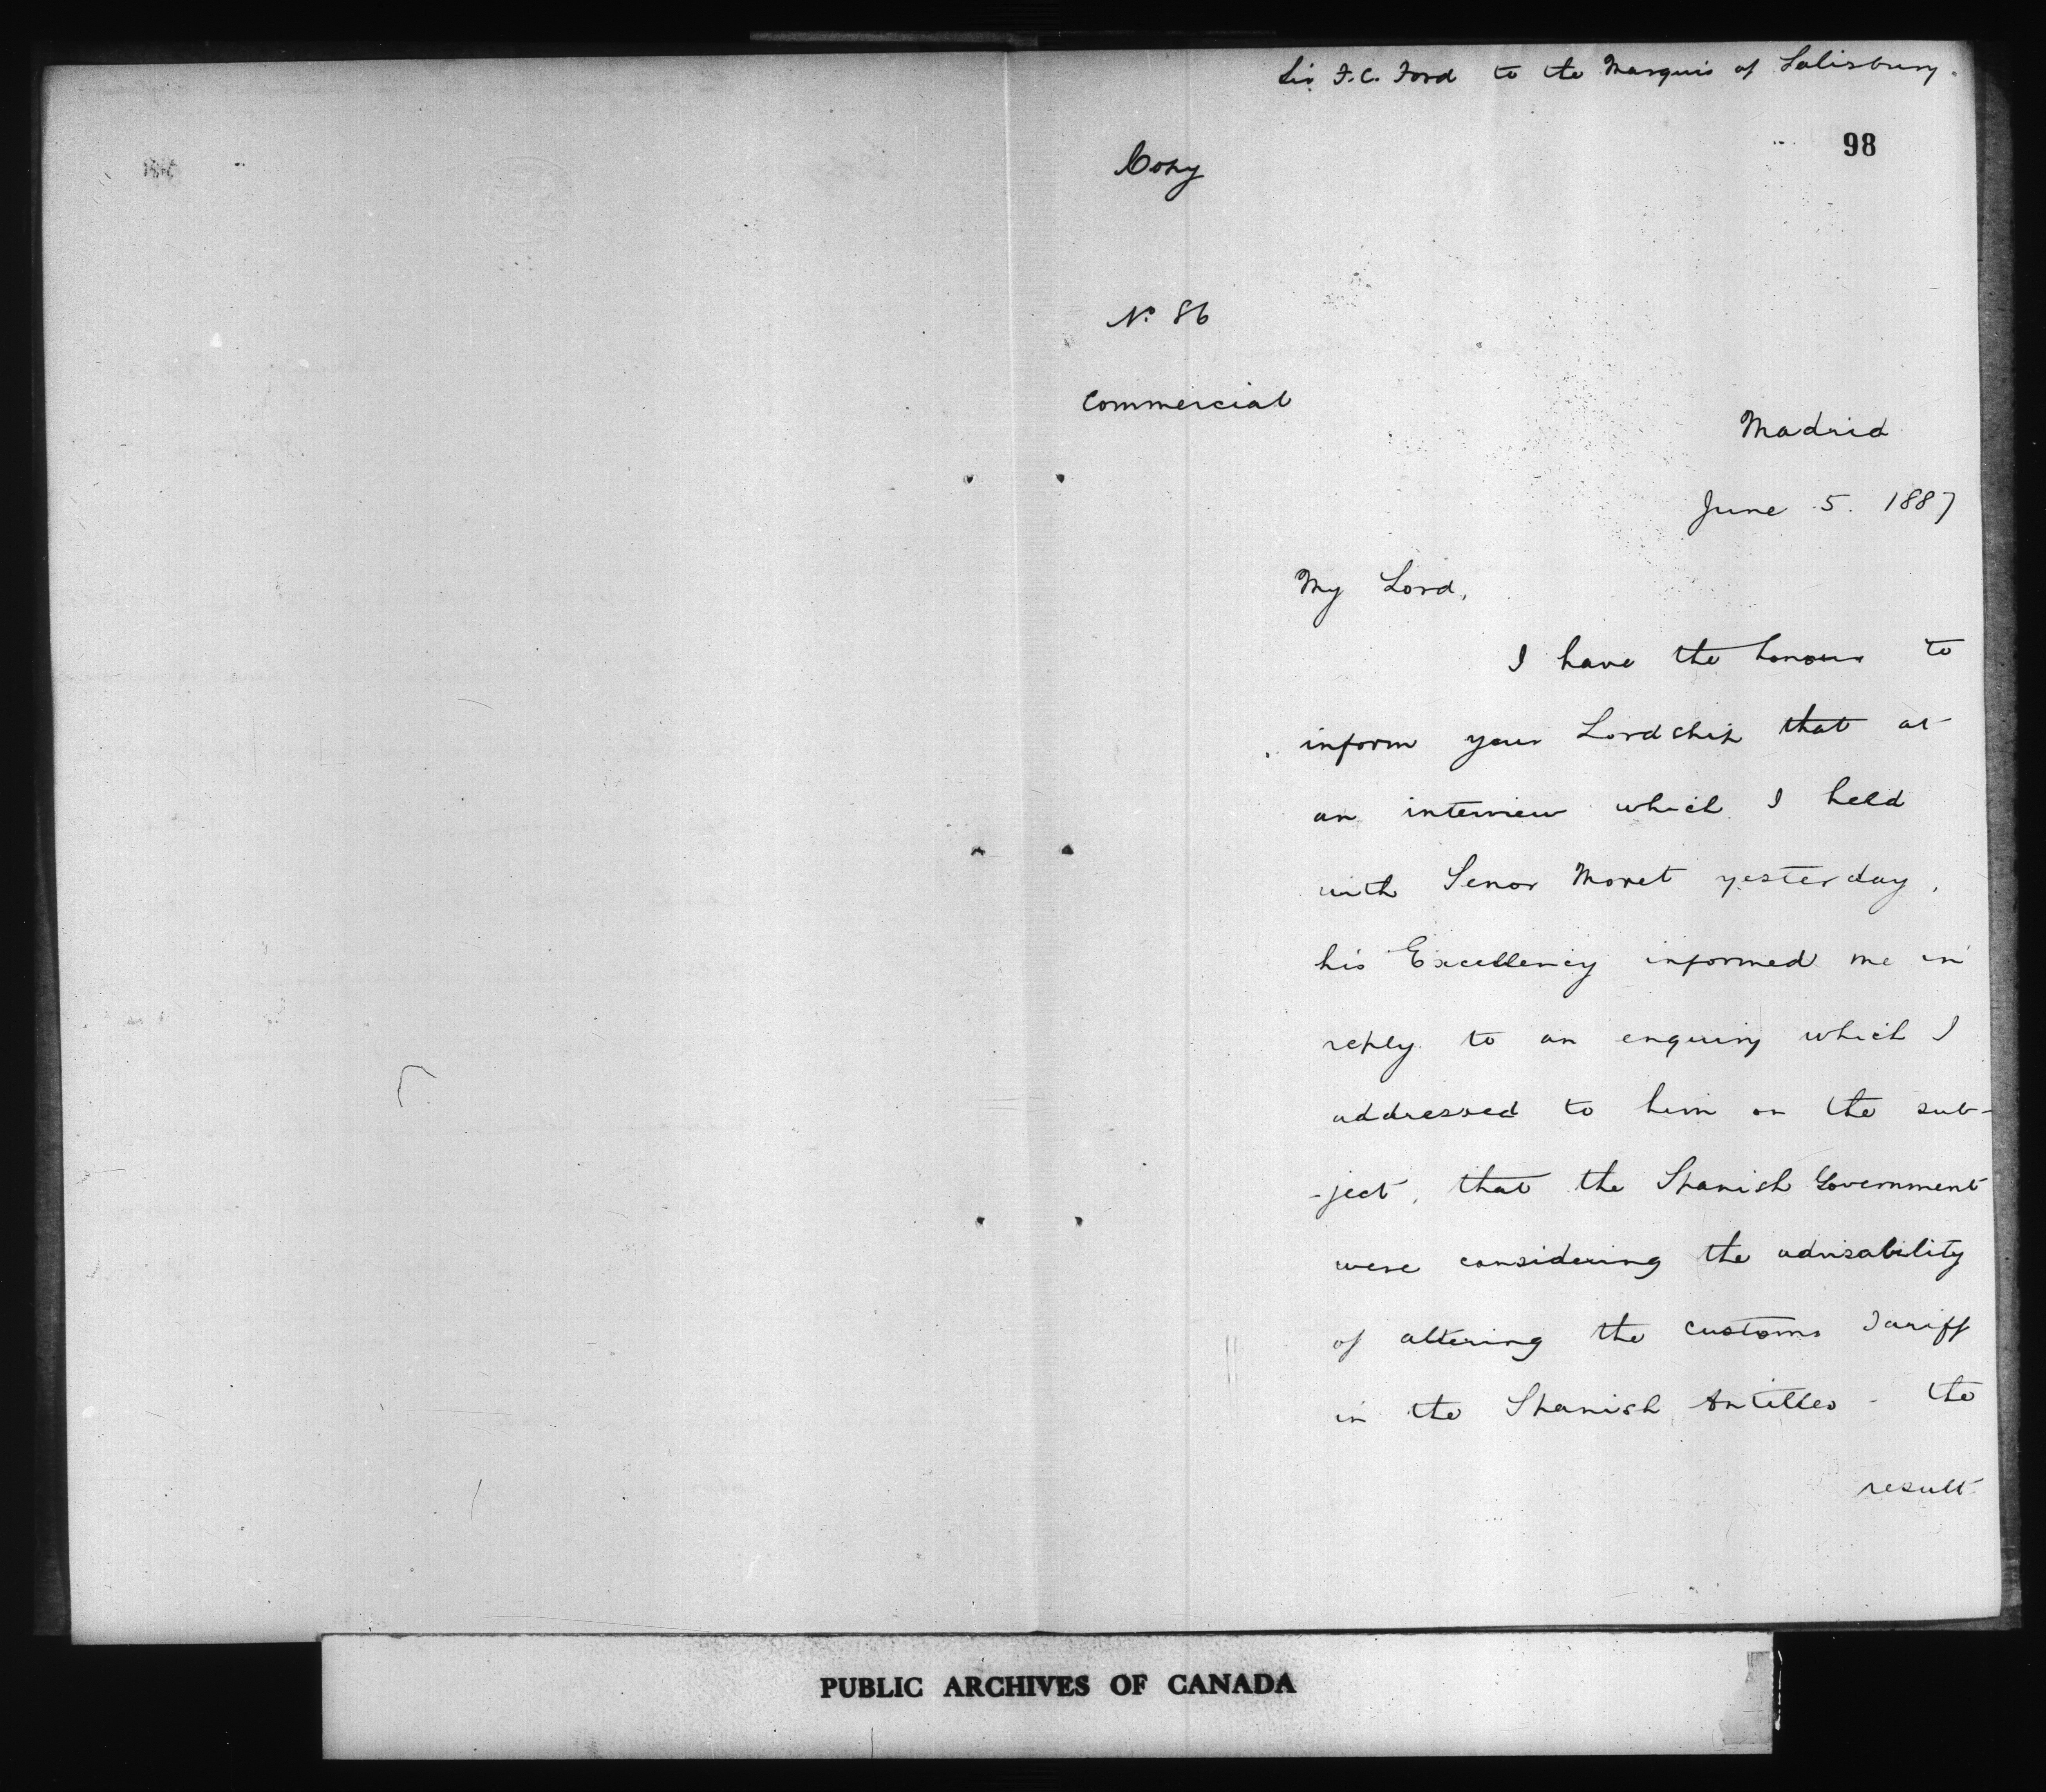 Sir F.C. Ford to the Marquis of Salisbury.
98
Copy
No. 86
Commercial
Madrid
June 5. 1887
My Lord,
I have the honour to
inform your Lordship that at
an interview which I held
with Senor Moret yesterday,
his Excellency informed me in
reply to an enquiry which I
addressed to him on the sub-
-ject, that the Spanish Government
were considering the advisability
of altering the customs Tariff
in the Spanish Antilles - the
result
PUBLIC ARCHIVES OF CANADA